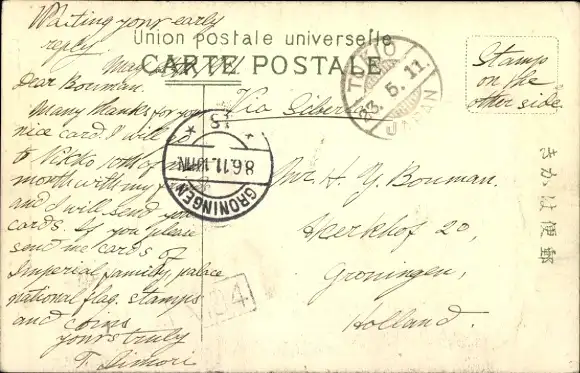 Waiting your early
reply.
Union postale universelle
CARTE POSTALE
May
Dear Bouman.
Many thanks for your
nice card. I will go
to Nikko 10th of
month with my
and I will send you
cards. If you please
send me cards of
Imperial family, palace
national flag, stamps
and coins
yours truly
T. Simori
Via Siberia
TOKIO
23.5.11.
JAPAN
Stamps
on the
other side
8.6.11.
GRONINGEN
Mr. H. Y. Bouman.
Heerkhof 20,
Groningen,
Holland.
きかは便郵